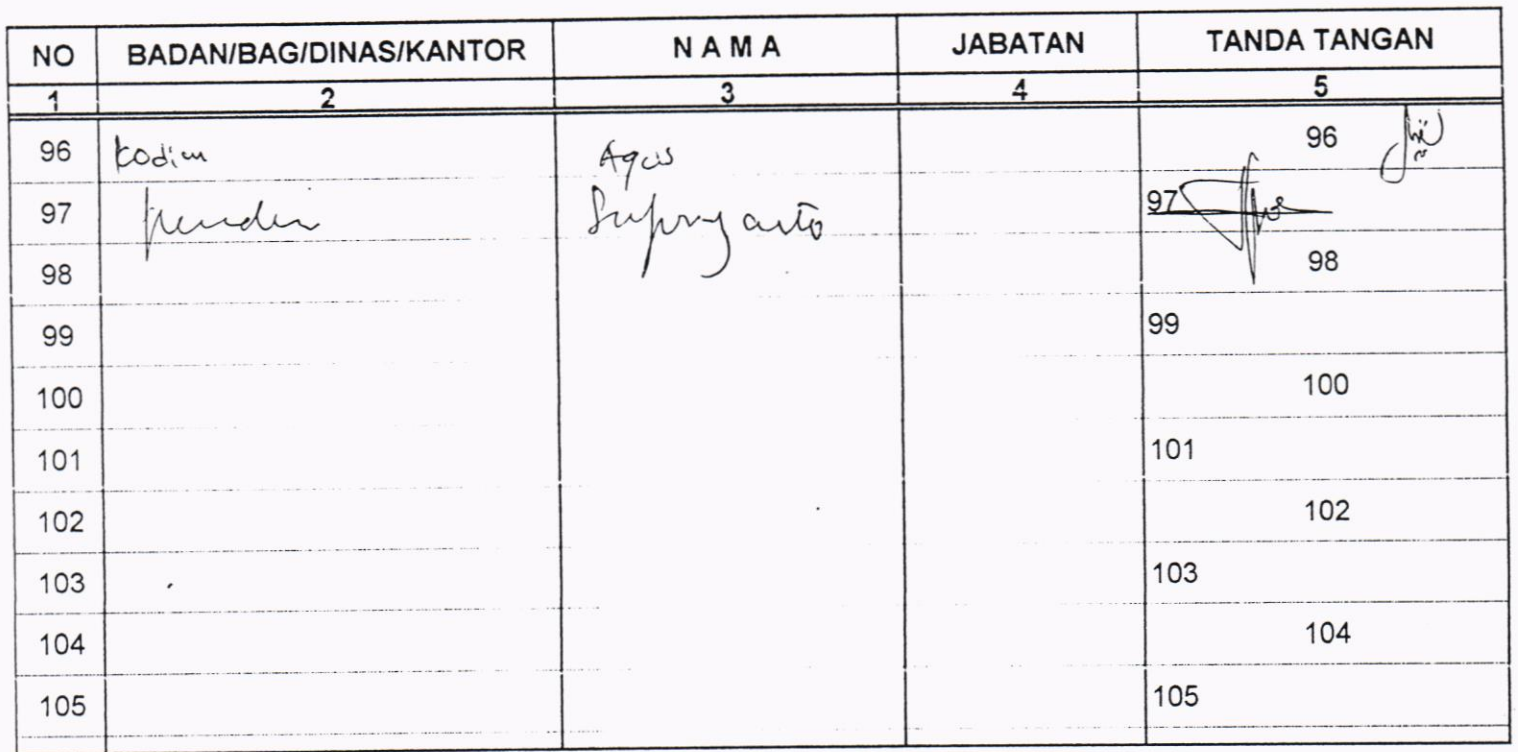 NO BADAN/BAG/DINAS/KANTOR N A M A JABATAN TANDA TANGAN
1 2 3 4 5
96 Kodim Agus 96
97 Supriyanto 97
98 98
99 99
100 100
101 101
102 102
103 103
104 104
105 105